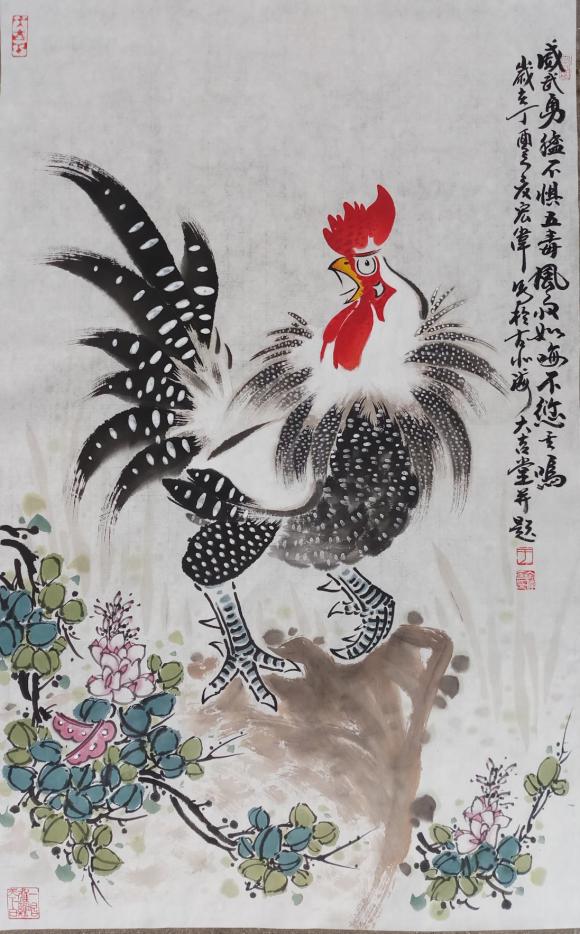 威武勇猛不惧五毒風雨如晦不愆鳴
歲在丁酉之夏宏偉寫於古北海大吉堂并題